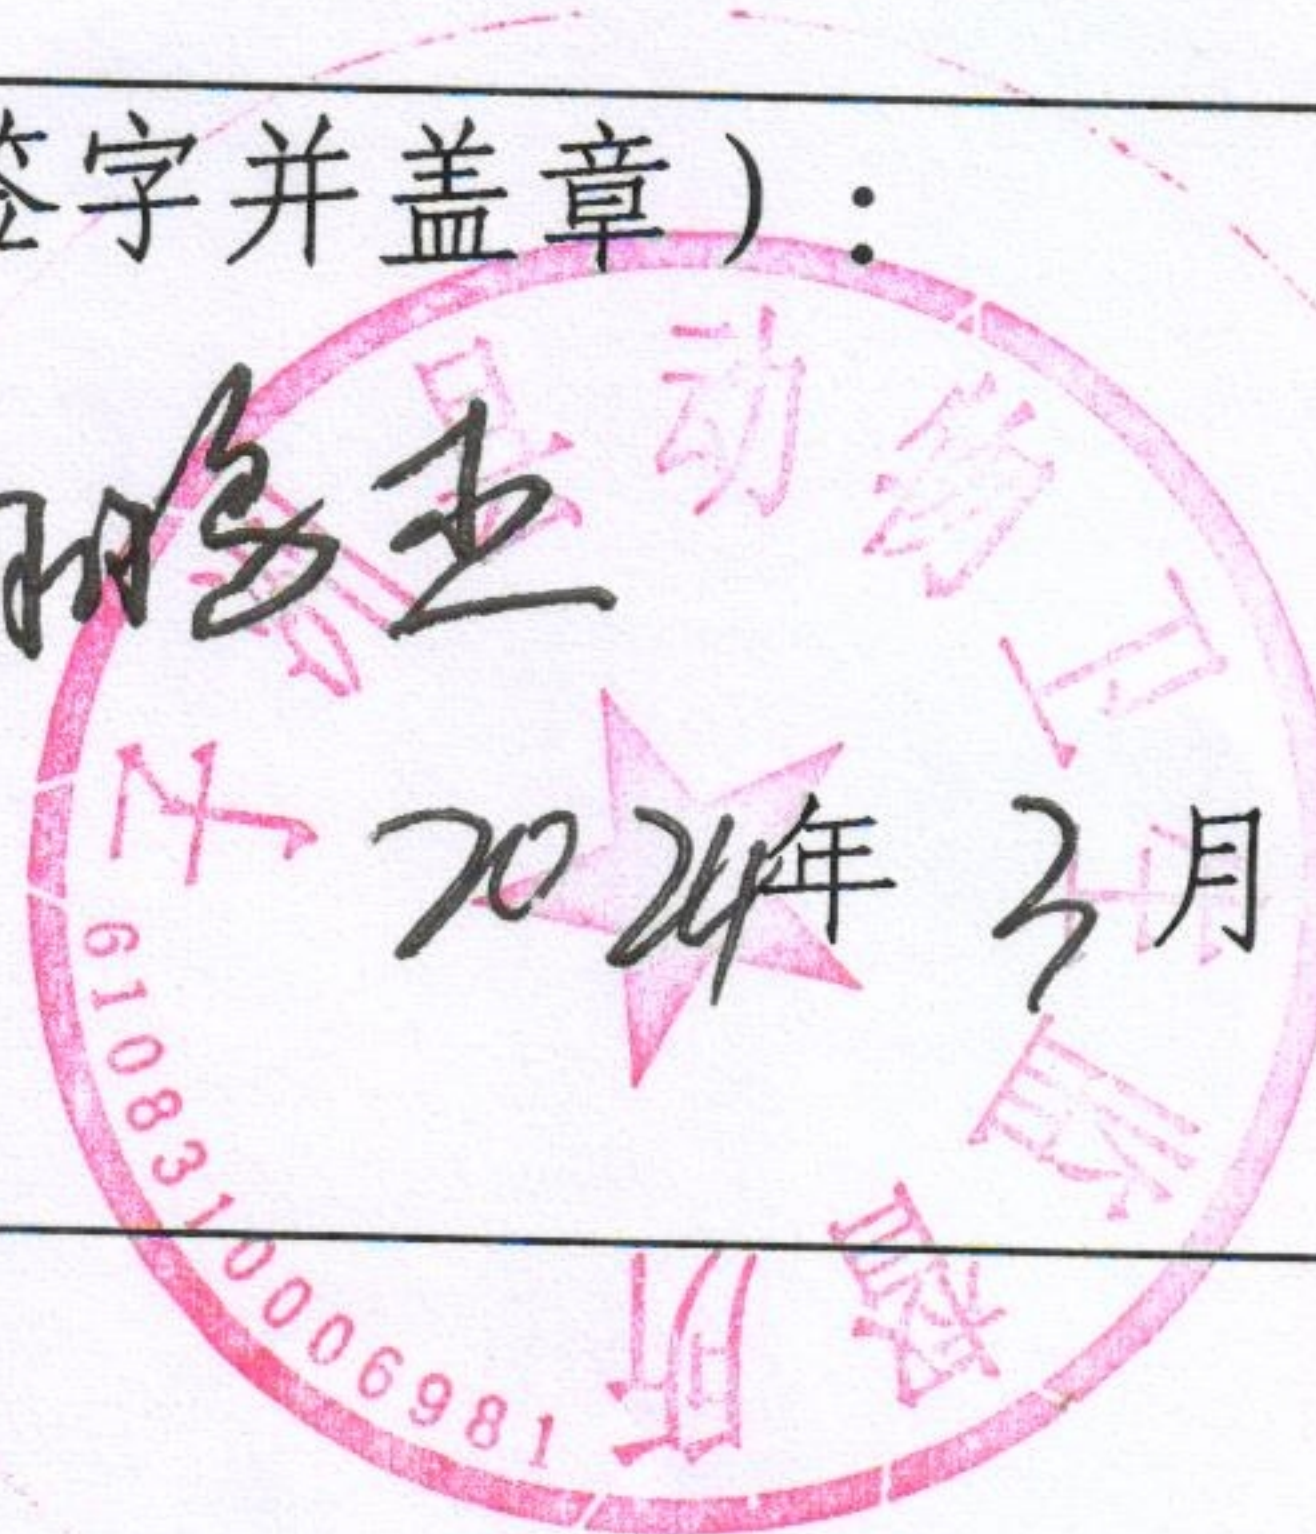 签字并盖章）：
2024年3月
子洲县动物卫生监督所
6108310006981